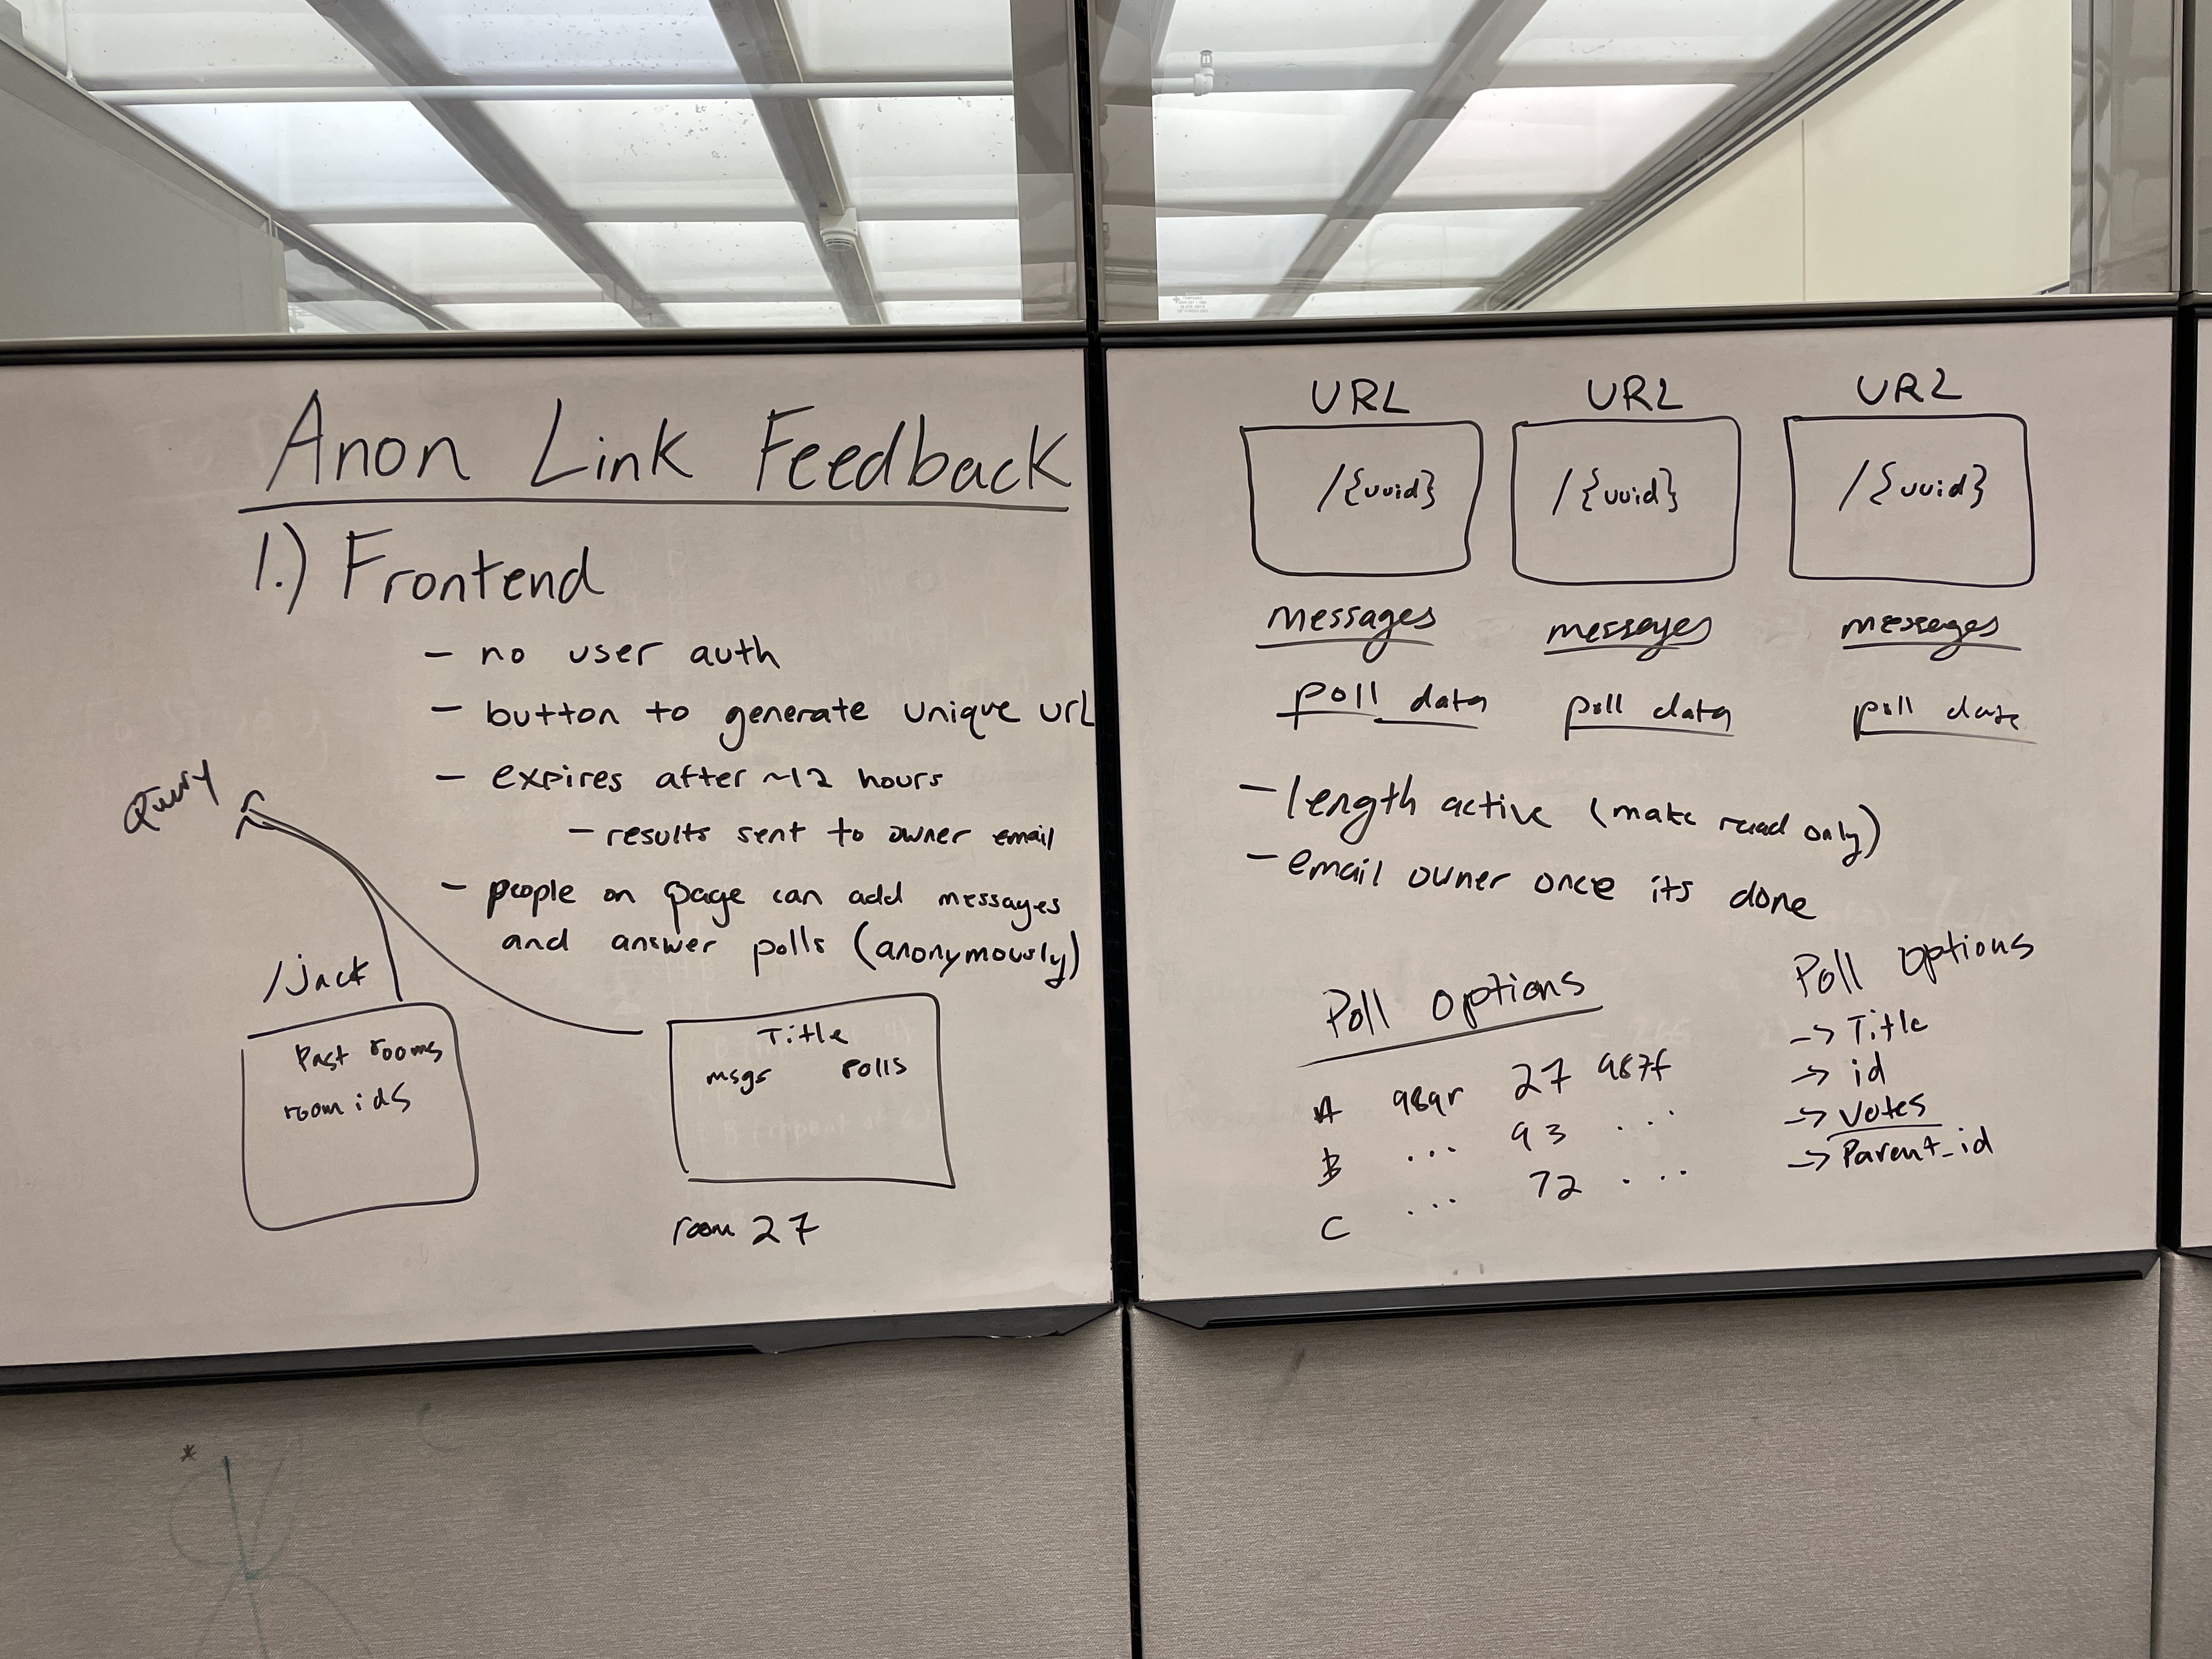 Anon Link Feedback
1.) Frontend
- no user auth
- button to generate unique url
- expires after ~12 hours
- results sent to owner email
- people on page can add messages
and answer polls (anonymously)
Query
/jack
Past rooms
room ids
Title
msgs polls
room 27
URL URL URL
/{uuid} /{uuid} /{uuid}
messages messages messages
poll data poll data poll data
- length active (make read only)
- email owner once its done
Poll options
A 989r 27 987f
B ... 93 ...
C ... 72 ...
Poll options
-> Title
-> id
-> votes
-> Parent_id